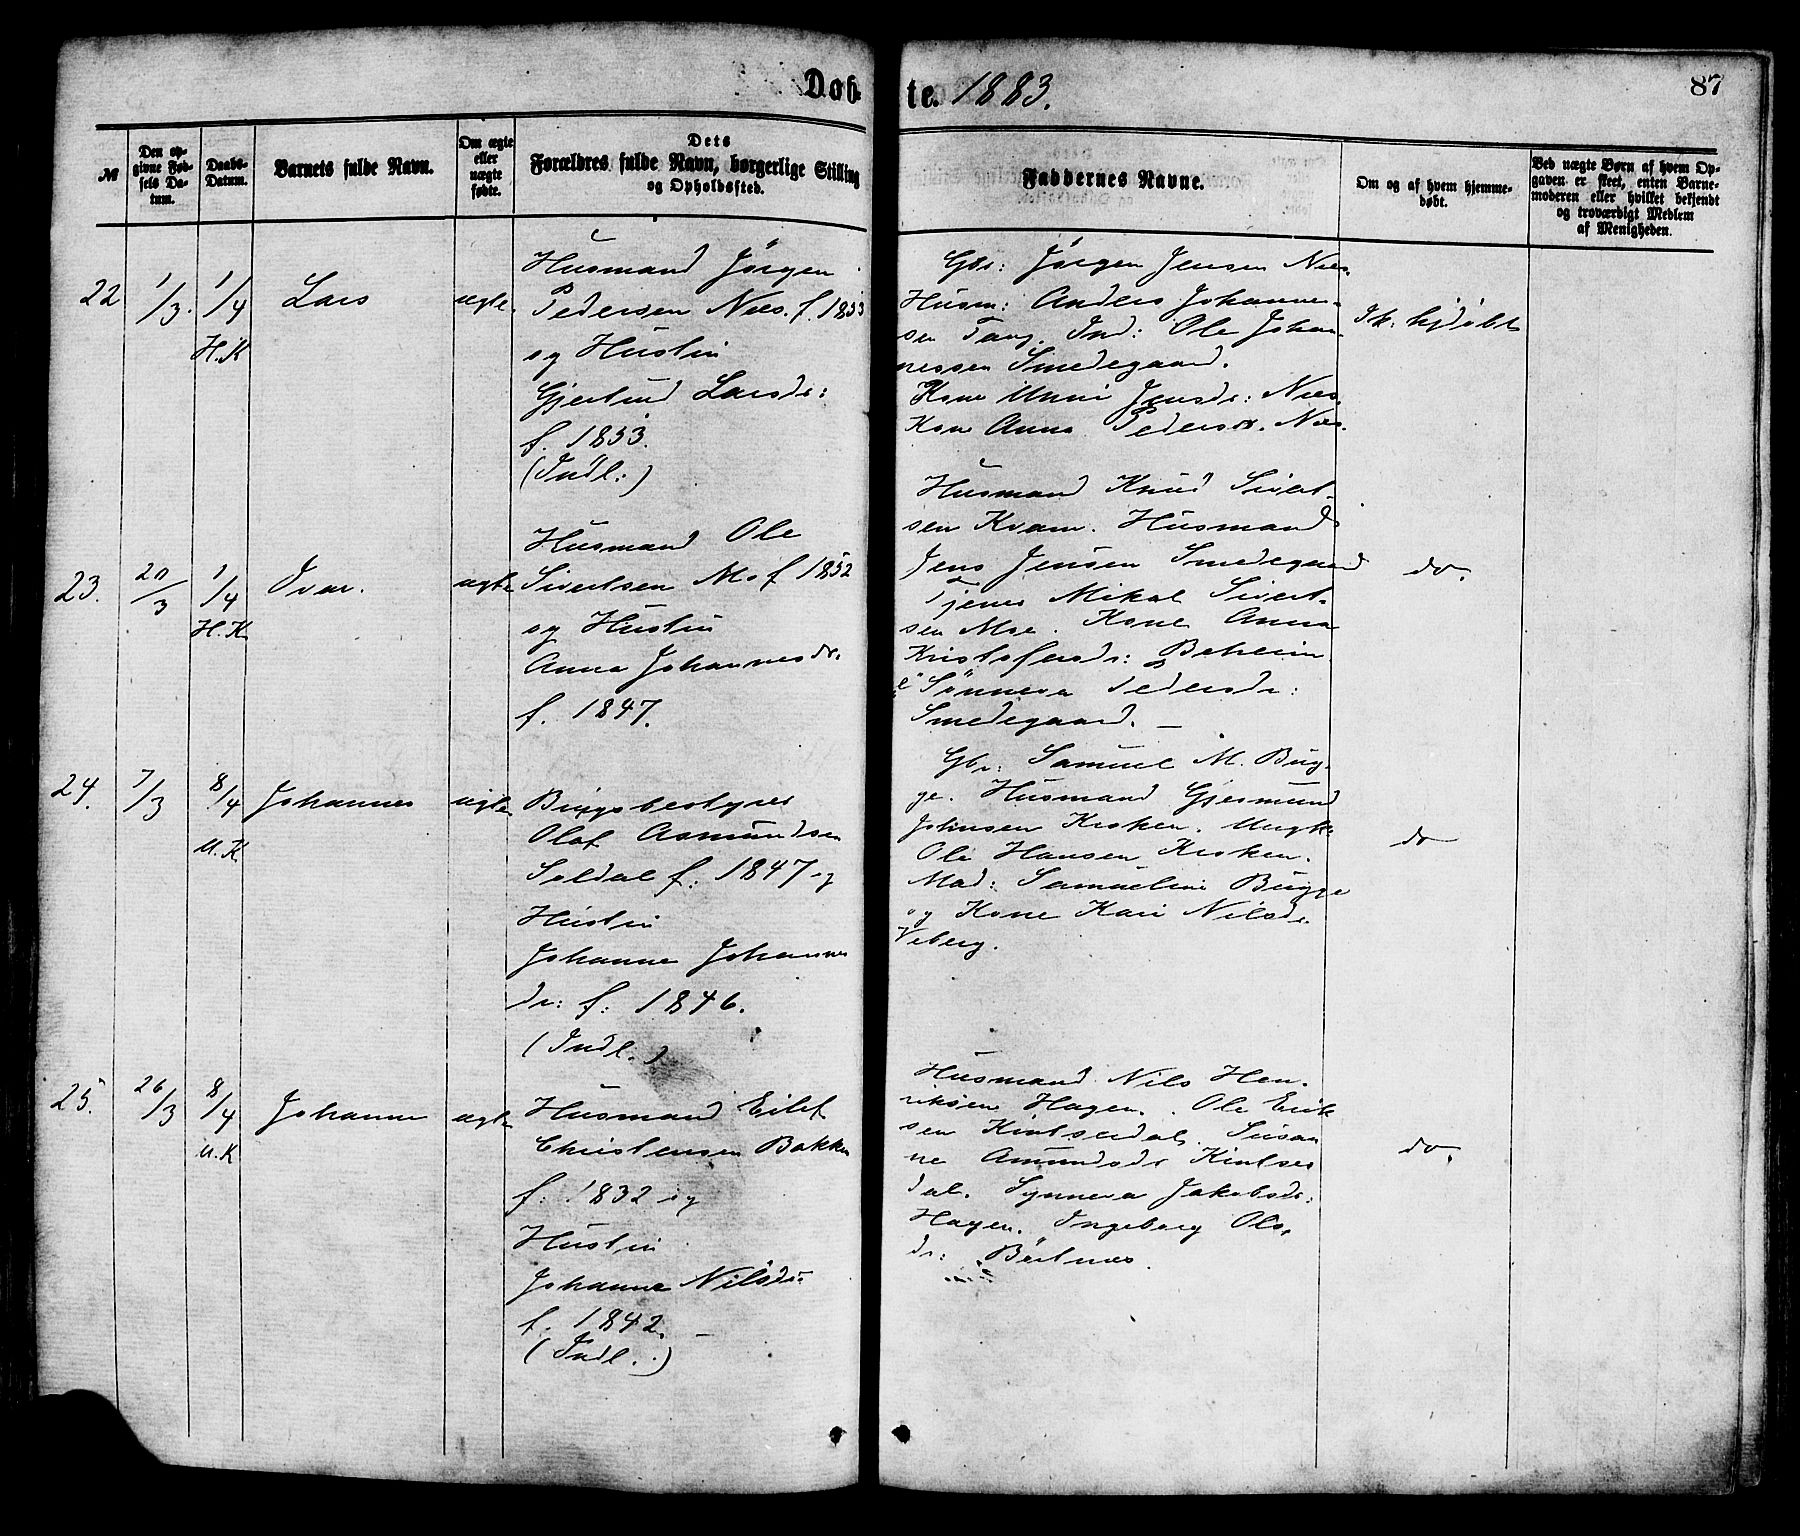 Døbte. 1883.
87
№
Den opgivne Fødsels Datum.
Daabs-Datum.
Barnets fulde Navn.
Om ægte eller uægte fødte.
Dets Forældres fulde Navn, borgerlige Stilling og Opholdssted.
Faddernes Navne.
Om og af hvem hjemmedøbt.
Ved uægte Børn af hvem Opgaven er skeet, enten Barnemoderen eller hvilket bekjendt og troværdigt Medlem af Menigheden.
22
1/3.
1/4
H.K
Lars
ægte.
Husmand Jørgen
Pedersen Næs. f. 1853
og Hustru
Gjertrud Larsdr:
f. 1853.
(Indl:)
Gbr: Jørgen Jensen Næs.
Husm: Anders Johannes-
sen Tang. Ind: Ole Johan-
nessen Smedegaard.
Kone Unni Jensdr: Næs.
Kone Anna Pedersdr. Næs.
Ik: hjdøbt
23.
20/3
1/4
H.K
Ivar.
ægte
Husmand Ole
Sivertsen Mo f 1852
og Hustru
Anna Johannesdr.
f. 1847.
Husmand Knud Sivert-
sen Kvam. Husmand
Jens Jensen Smedegaard
Tjener Mikal Sivert-
sen Moe. Kone Anna
Kristofersdr: Beheim
Sønneva Pedersdr:
Smedegaard. —
do.
24.
7/3
8/4
U.K
Johannes
ægte
Brugsbestyrer
Olaf Asmundsen
Seldal f: 1847 og
Hustru
Johanne Johannes
dr: f: 1846.
(Indl.)
Gbr: Samuel M. Bug-
ge. Husmand Gjermund
Johnsen Kroken. Ungk:
Ole Hansen Kroken.
Mad: Samueline Bugge
og Kone Kari Nilsdr
Veberg.
do
25.
26/3
8/4
U.K
Johanne
ægte
Husmand Eilef
Christensen Bakken
f: 1832 og
Hustru
Johanne Nilsdr
f. 1842. —
(Indl.)
Husmand Nils Hen-
riksen Hagen. Ole Erik
sen Kintsedal. Susan
ne Amundsdr Kintse
dal. Synneva Jakobsdr:
Hagen. Ingeborg Ols-
dr:
do.